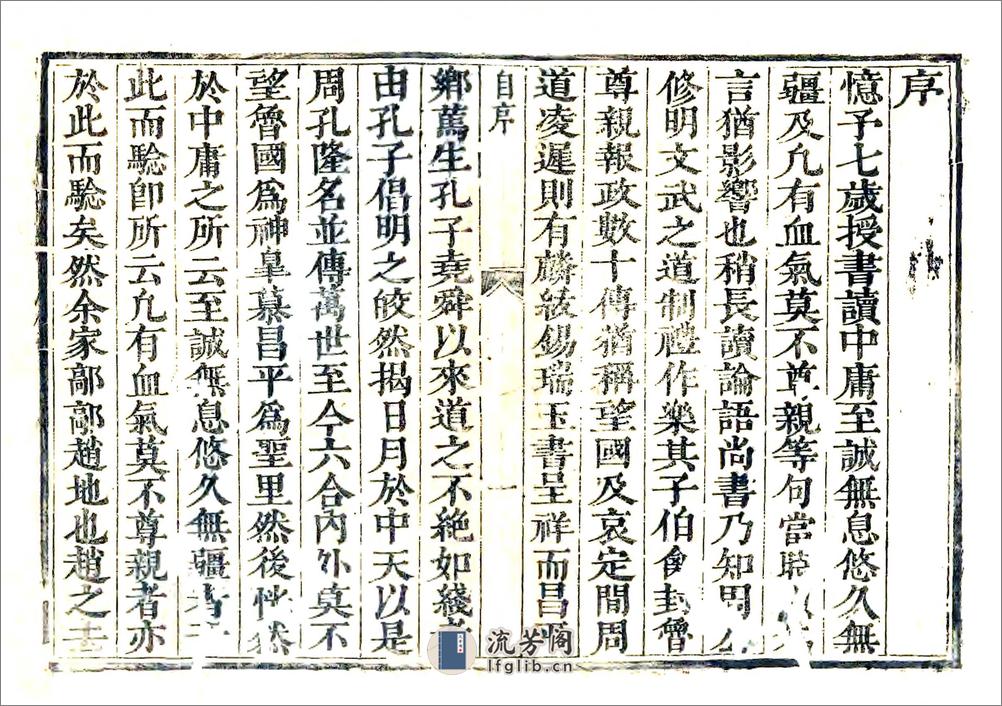 序
憶予七歲授書讀中庸至誠無息悠久無
疆及凢有血氣莫不尊親等句當時
言猶影響也稍長讀論語尚書乃知周公
修明文武之道制禮作樂其子伯禽封魯
尊親報政數十傳猶稱望國及哀定間周
道凌遲則有麟紱錫瑞玉書呈祥而昌平
自序
一
鄉篤生孔子堯舜以來道之不絶如綫者
由孔子倡明之皎然揭日月於中天以是
周孔隆名並傳萬世至今六合内外莫不
望魯國爲神皐慕昌平爲聖里然後恍然
於中庸之所云至誠無息悠久無疆者于
此而驗卽所云凢有血氣莫不尊親者亦
於此而驗矣然余家鄗鄗趙地也趙之
流芳阁
lfglib.cn